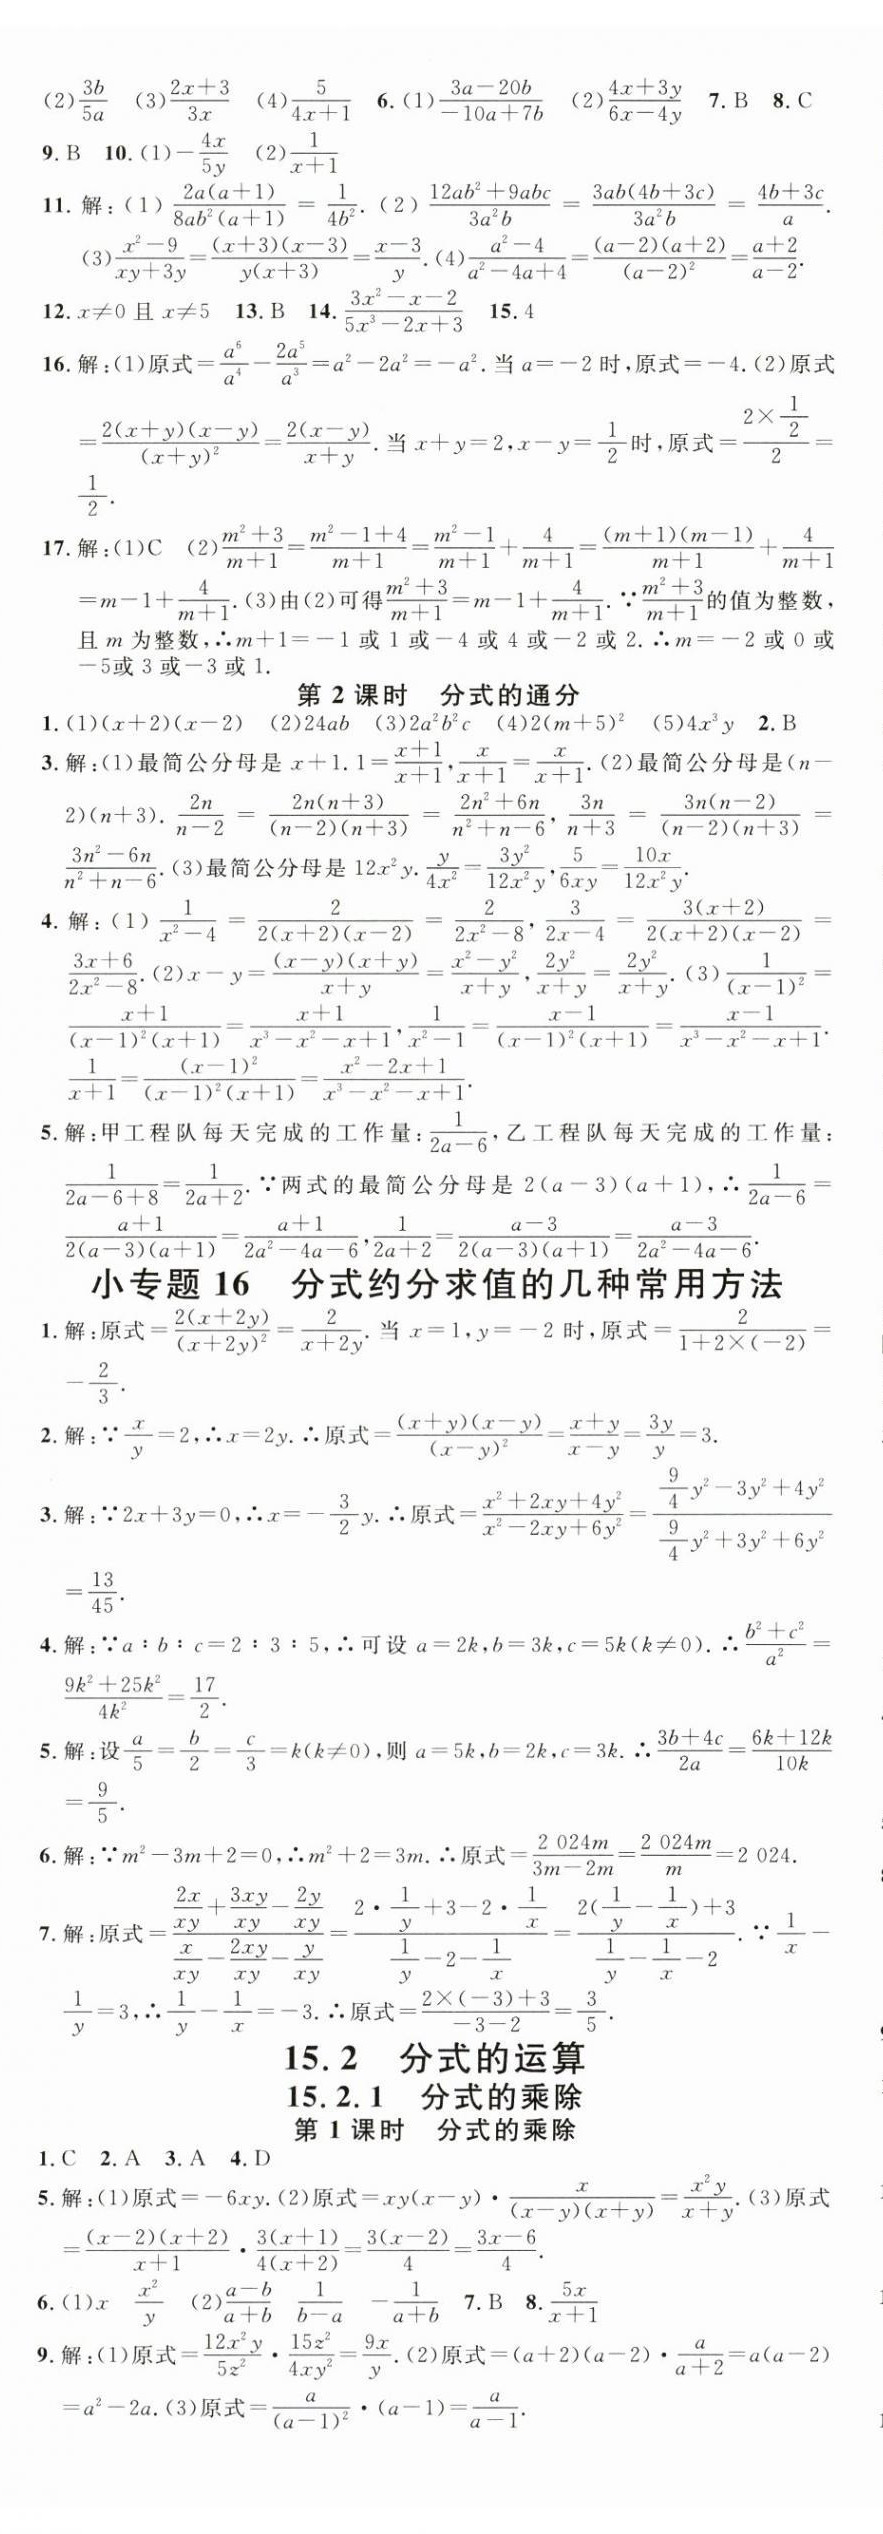 (2)3b/5a (3)(2x+3)/3x (4)5/(4x+1) 6.(1)(3a-20b)/(-10a+7b) (2)(4x+3y)/(6x-4y) 7.B 8.C
9.B 10.(1)-4x/5y (2)1/(x+1)
11.解:(1)2a(a+1)/8ab²(a+1)=1/4b².(2)(12ab²+9abc)/3a²b=3ab(4b+3c)/3a²b=(4b+3c)/a.
(3)(x²-9)/(xy+3y)=(x+3)(x-3)/y(x+3)=(x-3)/y.(4)(a²-4)/(a²-4a+4)=(a-2)(a+2)/(a-2)²=(a+2)/(a-2).
12.x≠0且x≠5 13.B 14.(3x²-x-2)/(5x³-2x+3) 15.4
16.解:(1)原式=a⁶/a⁴-2a⁵/a³=a²-2a²=-a².当a=-2时,原式=-4.(2)原式
=2(x+y)(x-y)/(x+y)²=2(x-y)/(x+y).当x+y=2,x-y=1/2时,原式=(2×1/2)/2=
1/2.
17.解:(1)C (2)(m²+3)/(m+1)=(m²-1+4)/(m+1)=(m²-1)/(m+1)+4/(m+1)=(m+1)(m-1)/(m+1)+4/(m+1)
=m-1+4/(m+1).(3)由(2)可得(m²+3)/(m+1)=m-1+4/(m+1).∵(m²+3)/(m+1)的值为整数,
且m为整数,∴m+1=-1或1或-4或4或-2或2.∴m=-2或0或
-5或3或-3或1.
第2课时 分式的通分
1.(1)(x+2)(x-2) (2)24ab (3)2a²b²c (4)2(m+5)² (5)4x³y 2.B
3.解:(1)最简公分母是x+1.1=(x+1)/(x+1),x/(x+1)=x/(x+1).(2)最简公分母是(n-
2)(n+3).2n/(n-2)=2n(n+3)/(n-2)(n+3)=(2n²+6n)/(n²+n-6),3n/(n+3)=3n(n-2)/(n-2)(n+3)=
(3n²-6n)/(n²+n-6).(3)最简公分母是12x²y.y/4x²=3y²/12x²y,5/6xy=10x/12x²y.
4.解:(1)1/(x²-4)=2/2(x+2)(x-2)=2/(2x²-8),3/(2x-4)=3(x+2)/2(x+2)(x-2)=
(3x+6)/(2x²-8).(2)x-y=(x-y)(x+y)/(x+y)=(x²-y²)/(x+y),2y²/(x+y)=2y²/(x+y).(3)1/(x-1)²=
(x+1)/(x-1)²(x+1)=(x+1)/(x³-x²-x+1),1/(x²-1)=(x-1)/(x-1)²(x+1)=(x-1)/(x³-x²-x+1).
1/(x+1)=(x-1)²/(x-1)²(x+1)=(x²-2x+1)/(x³-x²-x+1).
5.解:甲工程队每天完成的工作量:1/(2a-6),乙工程队每天完成的工作量:
1/(2a-6+8)=1/(2a+2).∵两式的最简公分母是2(a-3)(a+1),∴1/(2a-6)=
(a+1)/2(a-3)(a+1)=(a+1)/(2a²-4a-6),1/(2a+2)=(a-3)/2(a-3)(a+1)=(a-3)/(2a²-4a-6).
小专题16 分式约分求值的几种常用方法
1.解:原式=2(x+2y)/(x+2y)²=2/(x+2y).当x=1,y=-2时,原式=2/(1+2×(-2))=
-2/3.
2.解:∵x/y=2,∴x=2y.∴原式=(x+y)(x-y)/(x-y)²=(x+y)/(x-y)=3y/y=3.
3.解:∵2x+3y=0,∴x=-3/2y.∴原式=(x²+2xy+4y²)/(x²-2xy+6y²)=(9/4y²-3y²+4y²)/(9/4y²+3y²+6y²)
=13/45.
4.解:∵a:b:c=2:3:5,∴可设a=2k,b=3k,c=5k(k≠0).∴(b²+c²)/a²=
(9k²+25k²)/4k²=17/2.
5.解:设a/5=b/2=c/3=k(k≠0),则a=5k,b=2k,c=3k.∴(3b+4c)/2a=(6k+12k)/10k
=9/5.
6.解:∵m²-3m+2=0,∴m²+2=3m.∴原式=2 024m/(3m-2m)=2 024m/m=2 024.
7.解:原式=(2x/xy+3xy/xy-2y/xy)/(x/xy-2xy/xy-y/xy)=(2·1/y+3-2·1/x)/(1/y-2-1/x)=(2(1/y-1/x)+3)/(1/y-1/x-2).∵1/x-
1/y=3,∴1/y-1/x=-3.∴原式=(2×(-3)+3)/(-3-2)=3/5.
15.2 分式的运算
15.2.1 分式的乘除
第1课时 分式的乘除
1.C 2.A 3.A 4.D
5.解:(1)原式=-6xy.(2)原式=xy(x-y)·x/(x-y)(x+y)=x²y/(x+y).(3)原式
=(x-2)(x+2)/(x+1)·3(x+1)/4(x+2)=3(x-2)/4=(3x-6)/4.
6.(1)x x²/y (2)(a-b)/(a+b) 1/(b-a) -1/(a+b) 7.B 8.5x/(x+1)
9.解:(1)原式=12x²y/5z²·15z²/4xy²=9x/y.(2)原式=(a+2)(a-2)·a/(a+2)=a(a-2)
=a²-2a.(3)原式=a/(a-1)²·(a-1)=a/(a-1).